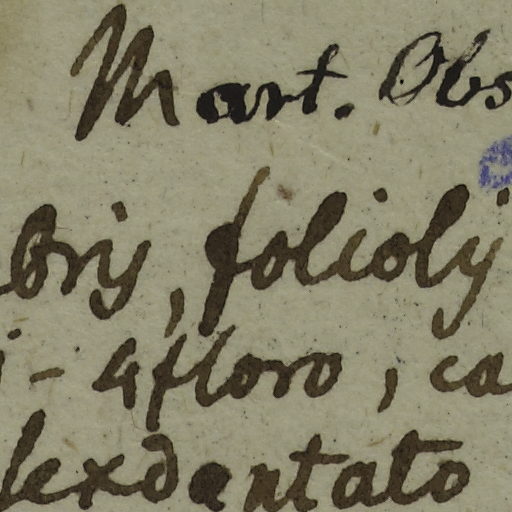 Mart. Obs
bris, folioly
i - 4floro, ca
sexdentato